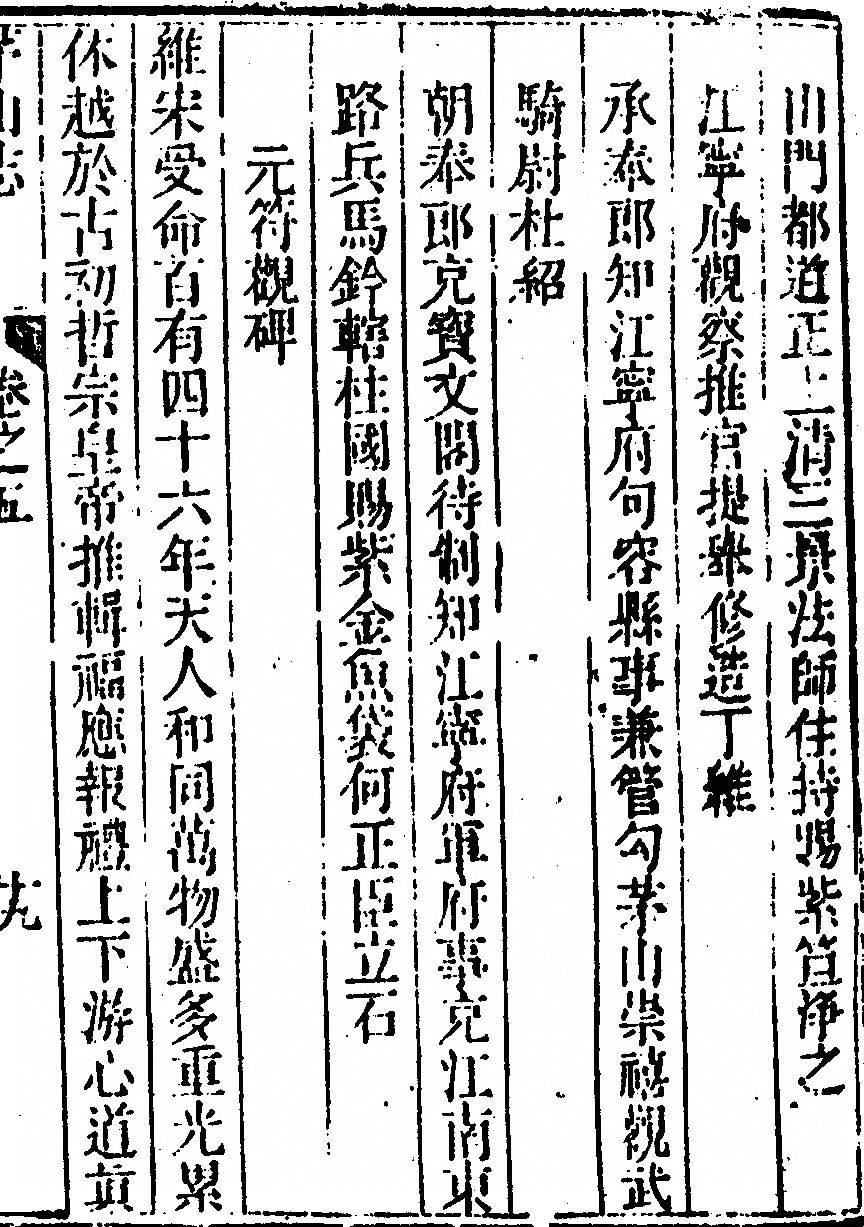 山門都道正上清三景法師住持賜紫笪淨之
江寧府觀察推官提舉修造丁維
承奉郎知江寧府句容縣事兼管勾茅山崇禧觀武
騎尉杜紹
朝奉郎充寶文閣待制知江寧府軍府事充江南東
路兵馬鈐轄柱國賜紫金魚袋何正臣立石
元符觀碑
維宋受命百有四十六年天人和同萬物盛多重光累
休越於古初哲宗皇帝推輯福應報禮上下游心道真
茅山志
卷之五
廿九